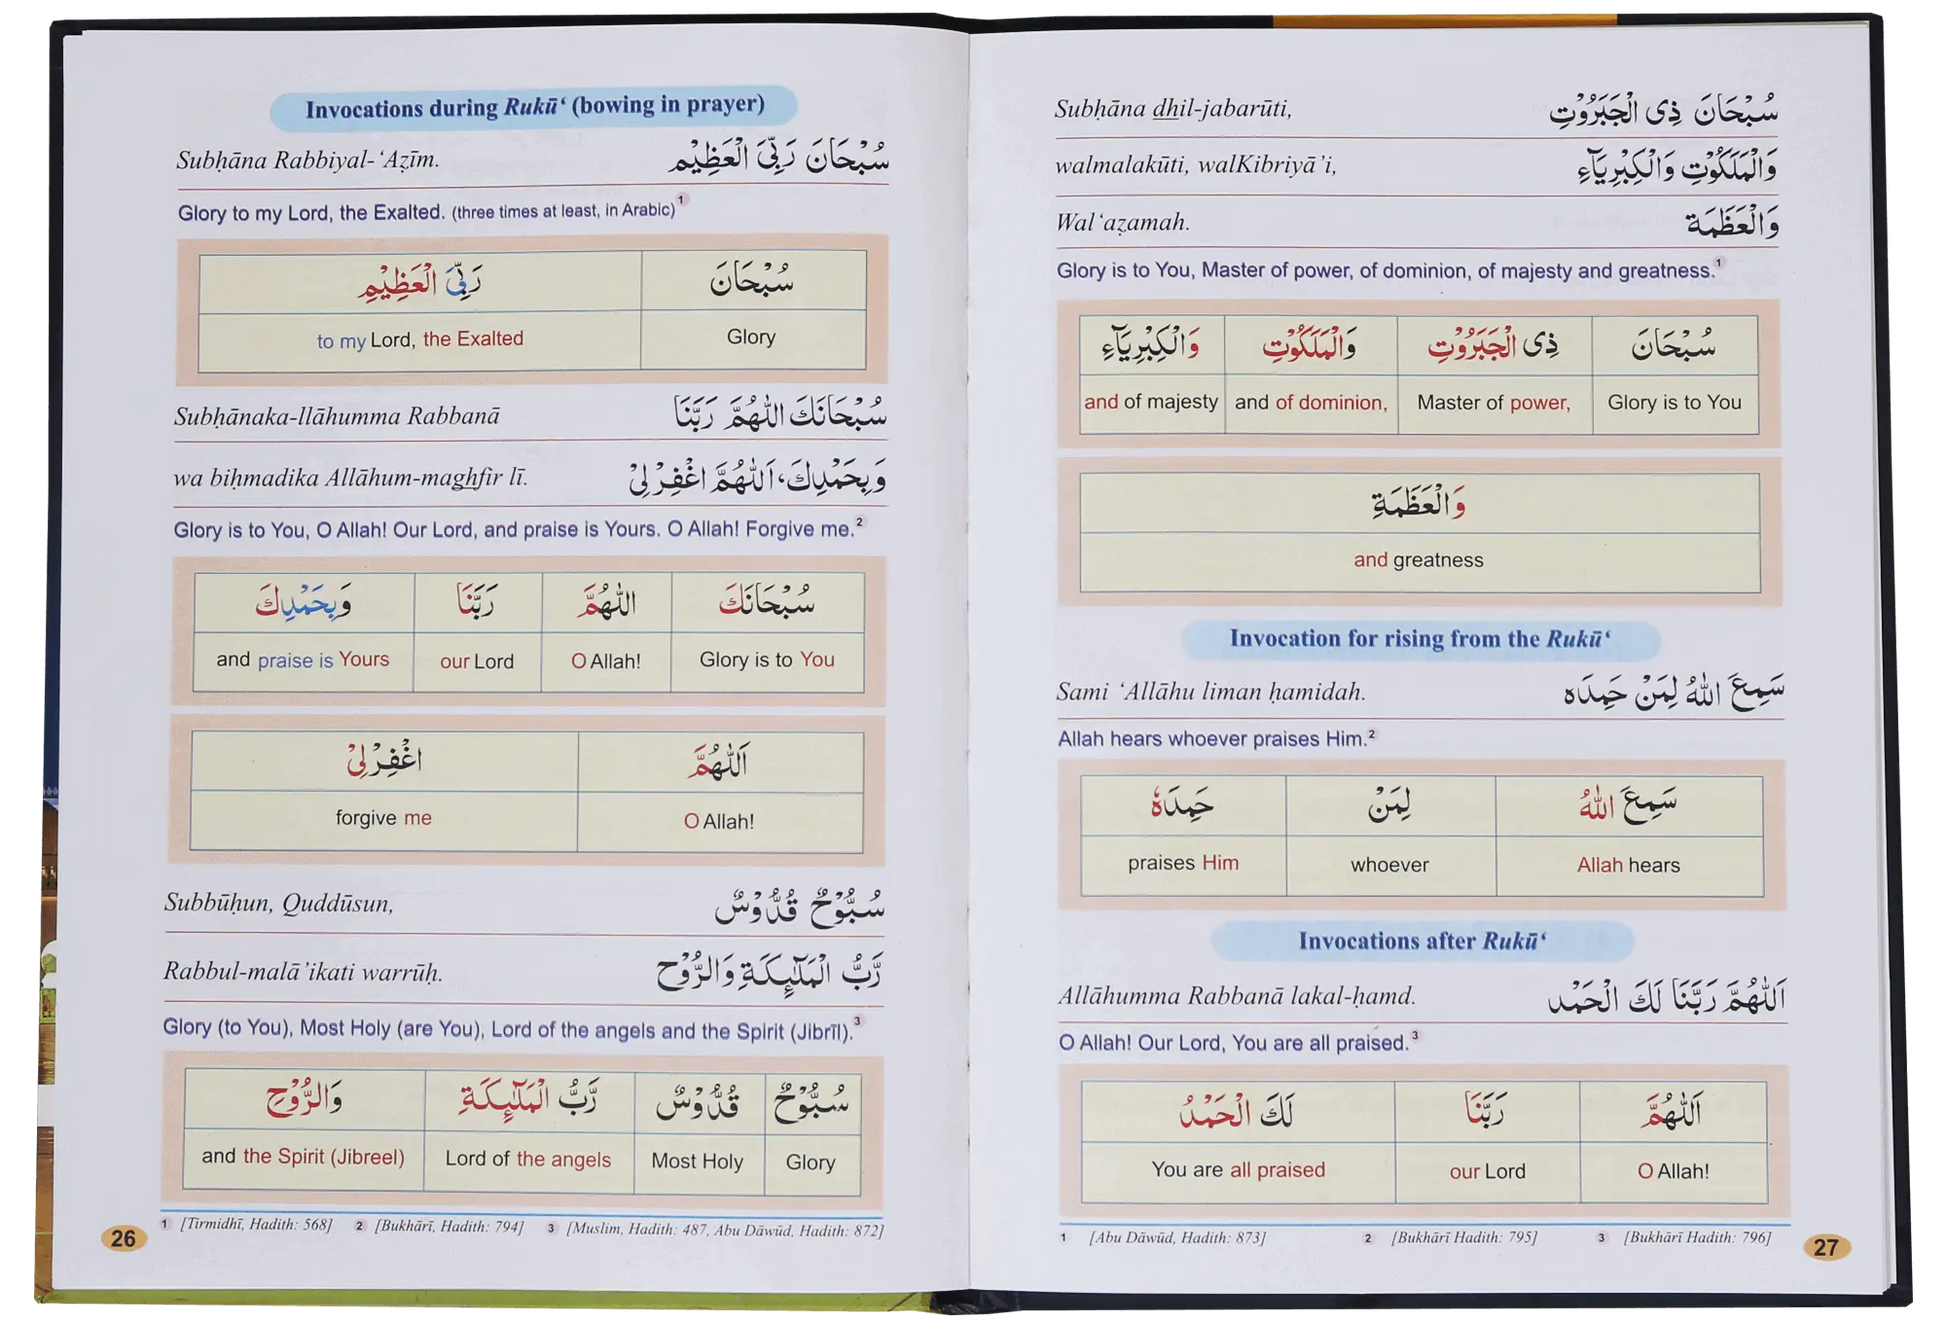 Invocations during Rukū‘ (bowing in prayer)
Subḥāna Rabbiyal-‘Aẓīm. سُبْحَانَ رَبِّىَ الْعَظِيْم
Glory to my Lord, the Exalted. (three times at least, in Arabic)1
سُبْحَانَ رَبِّىَ الْعَظِيْمِ
to my Lord, the Exalted Glory
Subḥānaka-llāhumma Rabbanā سُبْحَانَكَ اللّٰهُمَّ رَبَّنَا
wa biḥmadika Allāhum-maghfir lī. وَبِحَمْدِكَ، اَللّٰهُمَّ اغْفِرْلِىْ
Glory is to You, O Allah! Our Lord, and praise is Yours. O Allah! Forgive me.2
سُبْحَانَكَ اللّٰهُمَّ رَبَّنَا وَبِحَمْدِكَ
and praise is Yours our Lord O Allah! Glory is to You
اَللّٰهُمَّ اغْفِرْلِىْ
forgive me O Allah!
Subbūḥun, Quddūsun, سُبُّوْحٌ قُدُّوْسٌ
Rabbul-malā’ikati warrūḥ. رَّبُّ الْمَلٰٓئِكَةِ وَالرُّوْح
Glory (to You), Most Holy (are You), Lord of the angels and the Spirit (Jibrīl).3
سُبُّوْحٌ قُدُّوْسٌ رَّبُّ الْمَلٰٓئِكَةِ وَالرُّوْحِ
and the Spirit (Jibreel) Lord of the angels Most Holy Glory
1 [Tirmidhī, Hadith: 568] 2 [Bukhārī, Hadith: 794] 3 [Muslim, Hadith: 487, Abu Dāwūd, Hadith: 872]
26
Subḥāna dhil-jabarūti, سُبْحَانَ ذِى الْجَبَرُوْتِ
walmalakūti, walKibriyā’i, وَالْمَلَكُوْتِ وَالْكِبْرِيَآءِ
Wal‘aẓamah. وَالْعَظَمَة
Glory is to You, Master of power, of dominion, of majesty and greatness.1
سُبْحَانَ ذِى الْجَبَرُوْتِ وَالْمَلَكُوْتِ وَالْكِبْرِيَآءِ
and of majesty and of dominion, Master of power, Glory is to You
وَالْعَظَمَةِ
and greatness
Invocation for rising from the Rukū‘
Sami ‘Allāhu liman ḥamidah. سَمِعَ اللّٰهُ لِمَنْ حَمِدَه
Allah hears whoever praises Him.2
سَمِعَ اللّٰهُ لِمَنْ حَمِدَهٗ
praises Him whoever Allah hears
Invocations after Rukū‘
Allāhumma Rabbanā lakal-ḥamd. اَللّٰهُمَّ رَبَّنَا لَكَ الْحَمْد
O Allah! Our Lord, You are all praised.3
اَللّٰهُمَّ رَبَّنَا لَكَ الْحَمْدُ
You are all praised our Lord O Allah!
1 [Abu Dāwūd, Hadith: 873] 2 [Bukhārī Hadith: 795] 3 [Bukhārī Hadith: 796]
27